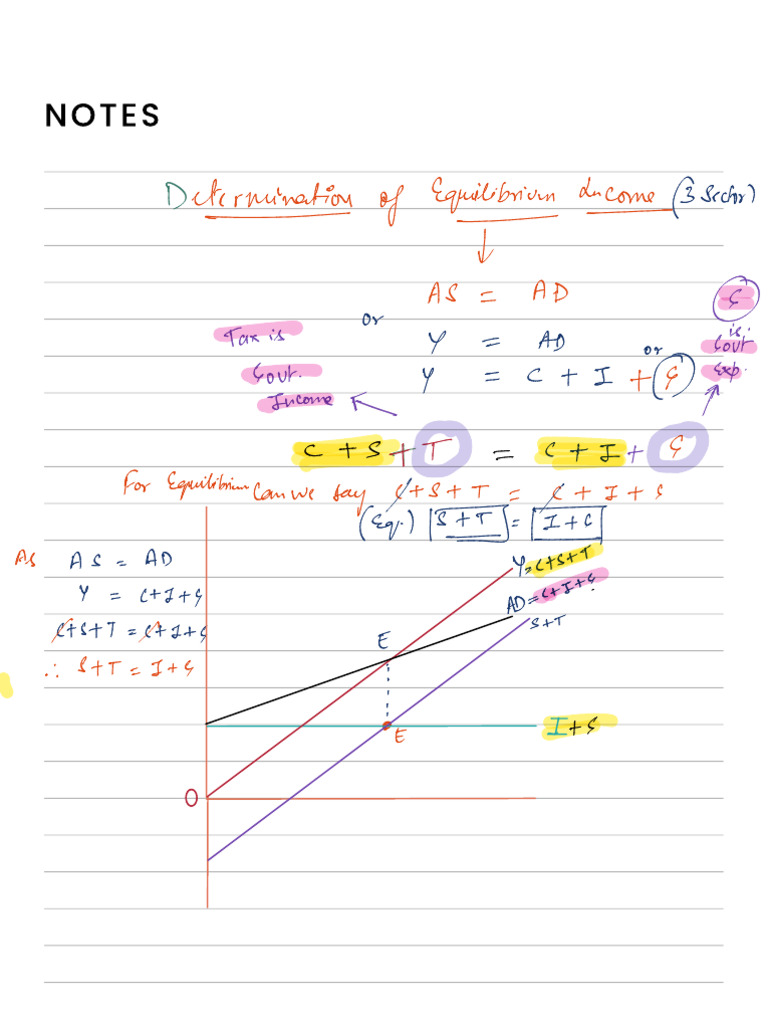 NOTES
Determination of Equilibrium Income (3 Sector)
AS = AD
or
Y = AD
or
Y = C + I + G
G is. Govt Exp.
Tax is Govt. Income
C + S + T = C + I + G
For Equilibrium Can we say C + S + T = C + I + G
(Eq.) S + T = I + G
As AS = AD
Y = C+I+G
C+S+T = C+I+G
∴ S+T = I+G
Y=C+S+T
AD=C+I+G
S+T
E
I+G
E
O